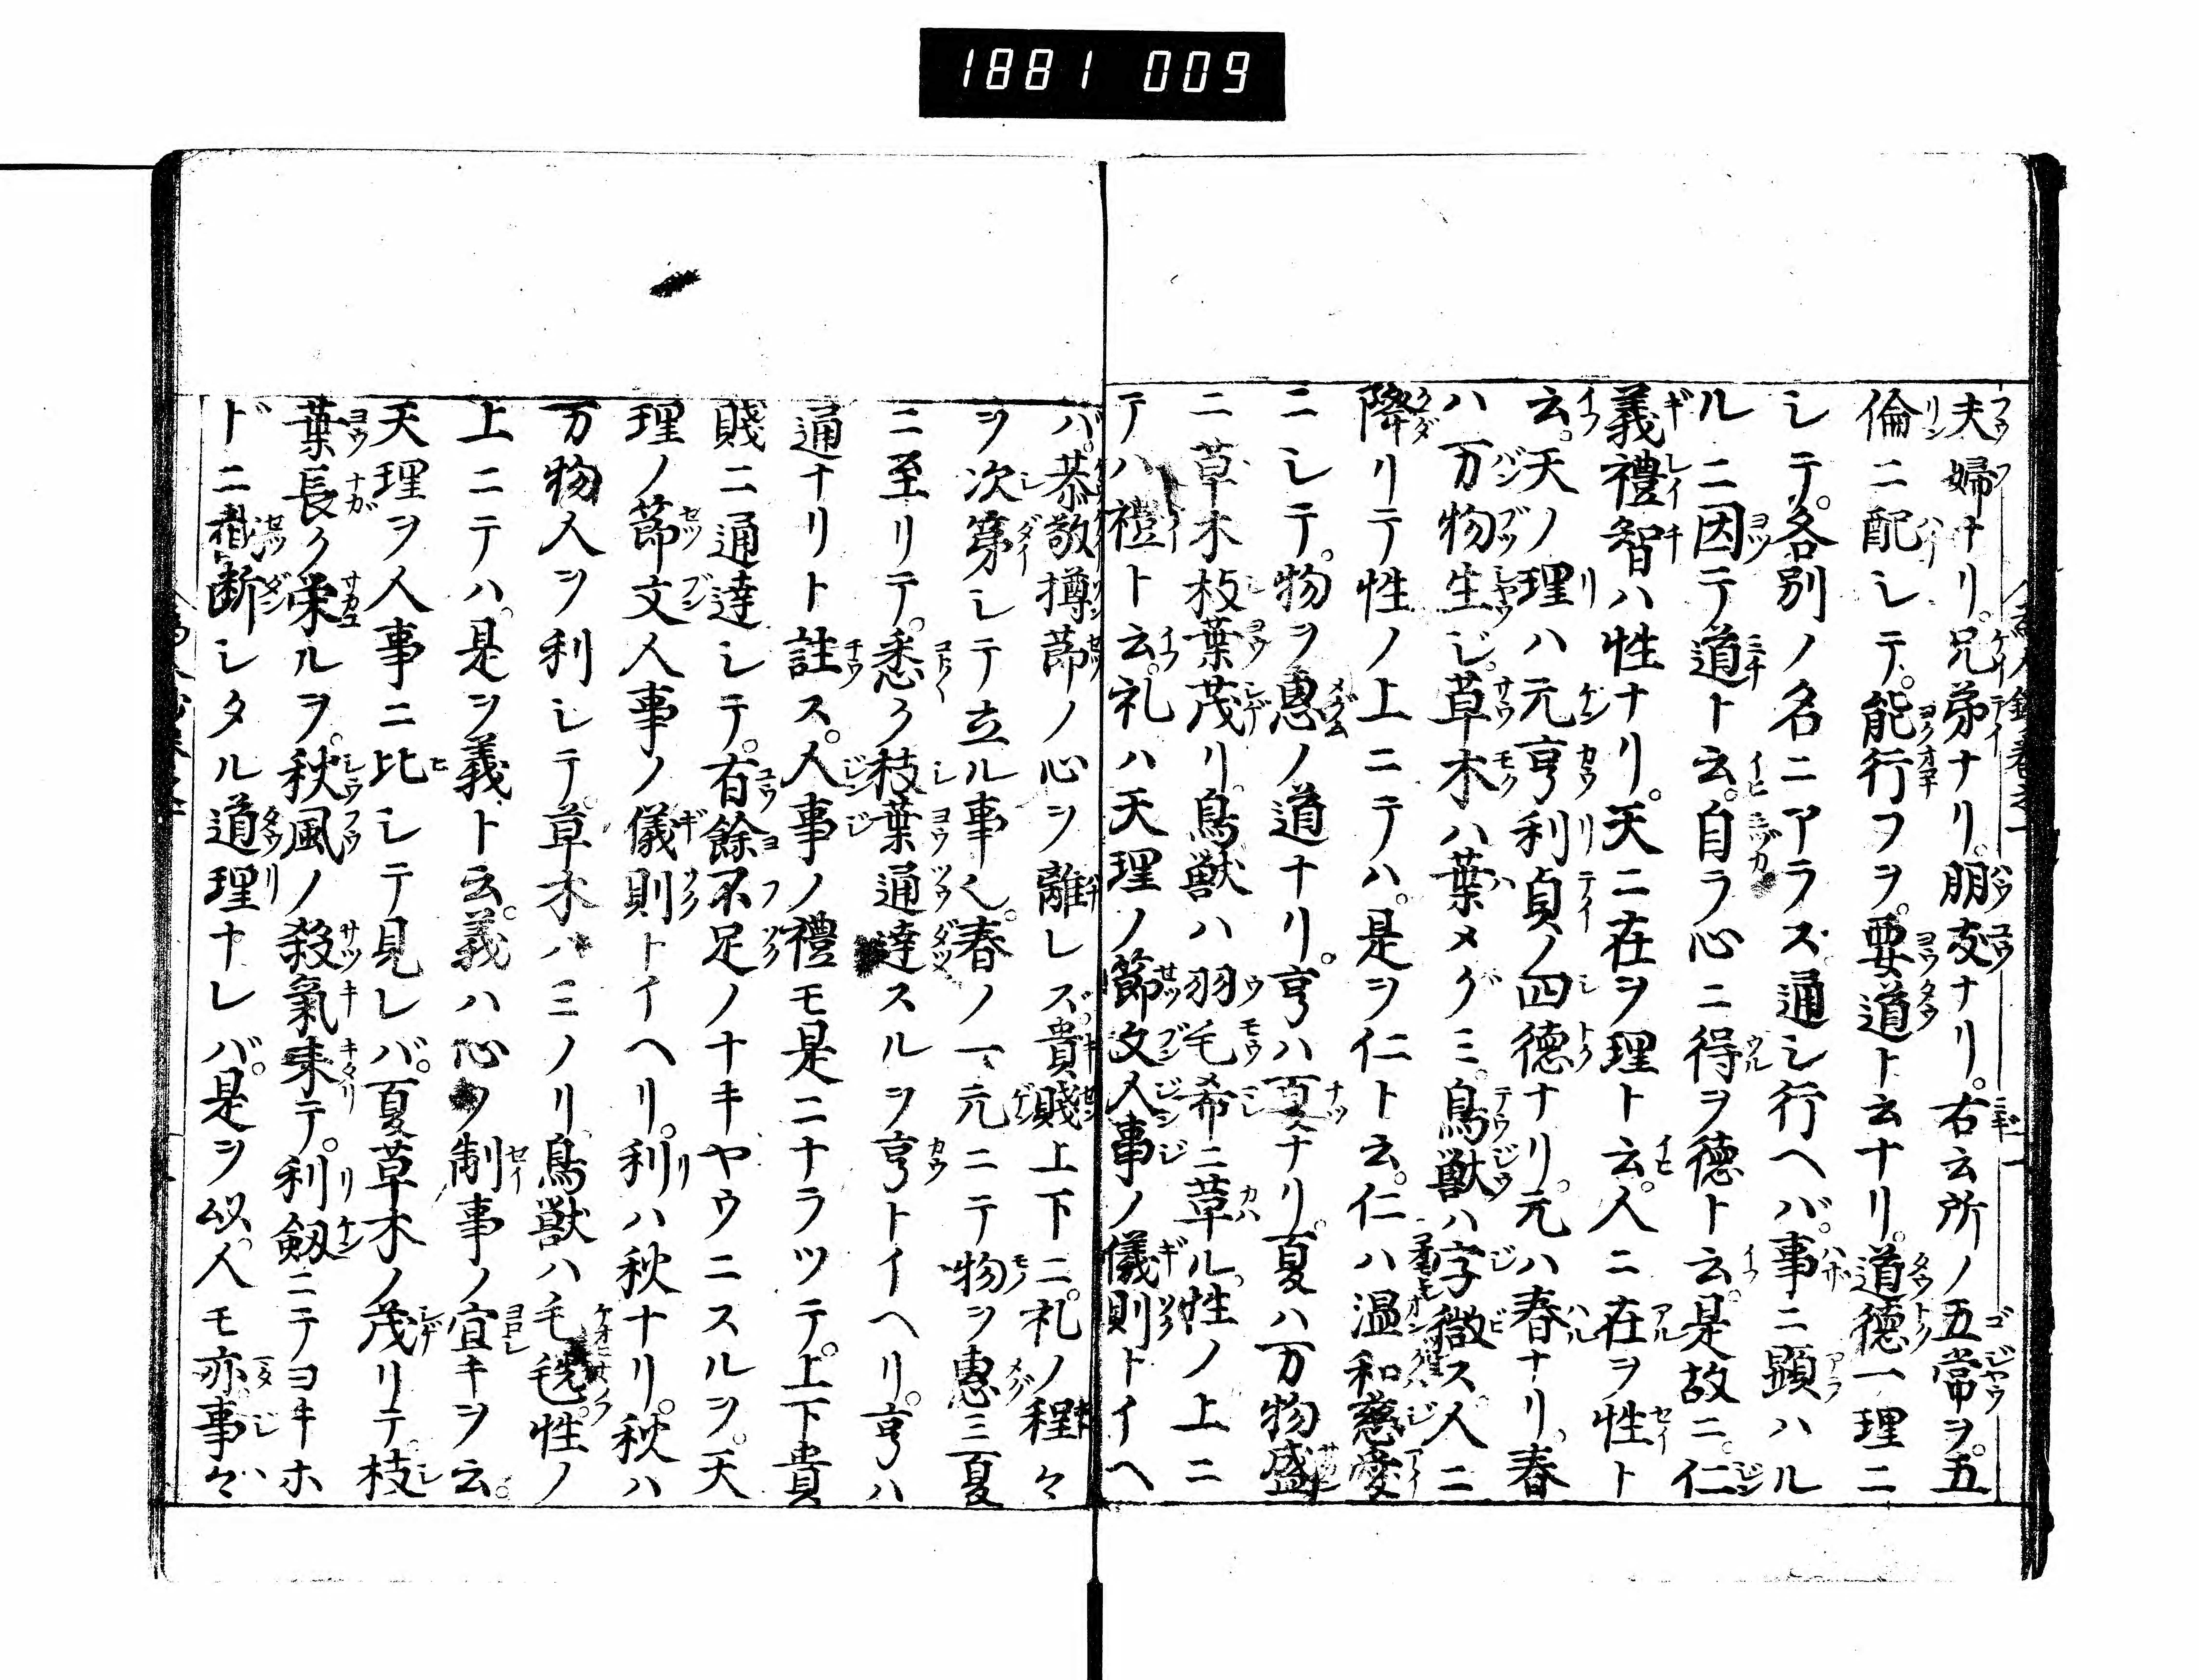 1881 009
夫婦ナリ。兄弟ナリ。朋友ナリ。右云所ノ五常ヲ。五
倫ニ配シテ。能行フヲ。要道ト云ナリ。道徳一理ニ
シテ。各別ノ名ニアラズ。通シ行ヘバ。事ニ顕ハル
ルニ因テ道ト云。自ラ心ニ得ヲ徳ト云。是故ニ。仁
義禮智ハ性ナリ。天ニ在ヲ理ト云。人ニ在ヲ性ト
云。天ノ理ハ元亨利貞ノ四徳ナリ。元ハ春ナリ。春
ハ万物生ジ。草木ハ葉メグミ。鳥獣ハ字微ス。人ニ
降リテ性ノ上ニテハ。是ヲ仁ト云。仁ハ温和慈愛
ニシテ。物ヲ惠ノ道ナリ。亨ハ夏ナリ。夏ハ万物盛
ニ草木枝葉茂リ。鳥獣ハ羽毛希ニ革ル。性ノ上ニ
テハ禮ト云。礼ハ天理ノ節文人事ノ儀則トイヘ
バ。恭敬撙節ノ心ヲ離レズ。貴賤上下ニ。礼ノ程々
ヲ次第シテ立ル事也。春ノ一元ニテ物ヲ惠三夏
ニ至リテ。悉ク枝葉通達スルヲ亨トイヘリ。亨ハ
通ナリト註ス。人事ノ禮モ是ニナラツテ。上下貴
賤ニ通達シテ。有餘不足ノナキヤウニスルヲ。天
理ノ節文人事ノ儀則トイヘリ。利ハ秋ナリ。秋ハ
万物人ヲ利シテ。草木ハミノリ。鳥獣ハ毛毨。性ノ
上ニテハ。是ヲ義ト云。義ハ心ヲ制事ノ宜キヲ云。
天理ヲ人事ニ比シテ見レバ。夏草木ノ茂リテ。枝
葉長ク栄ルヲ。秋風ノ殺氣来テ。利劔ニテヨキホ
ドニ截断シタル道理ナレバ。是ヲ以。人モ亦事々